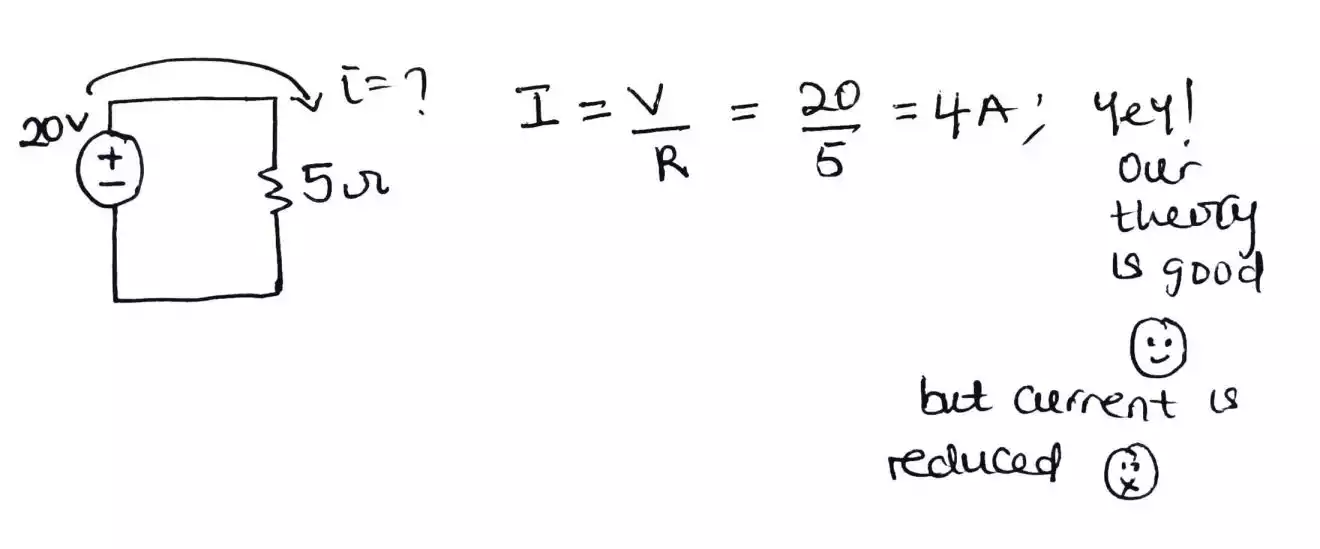 20V
+
−
i = ?
5Ω
I = V/R = 20/5 = 4A; Yey!
Our
theory
is good
but current is
reduced